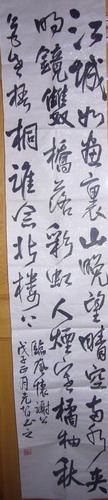 江城如畫裏山晚望晴空兩水夾
明鏡雙橋落彩虹人煙寒橘柚秋
色老梧桐誰念北樓上
臨風懷謝公
戊子正月